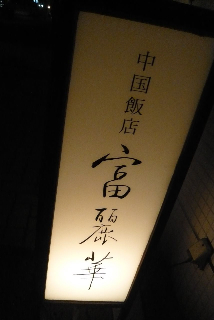 中国飯店
富麗華